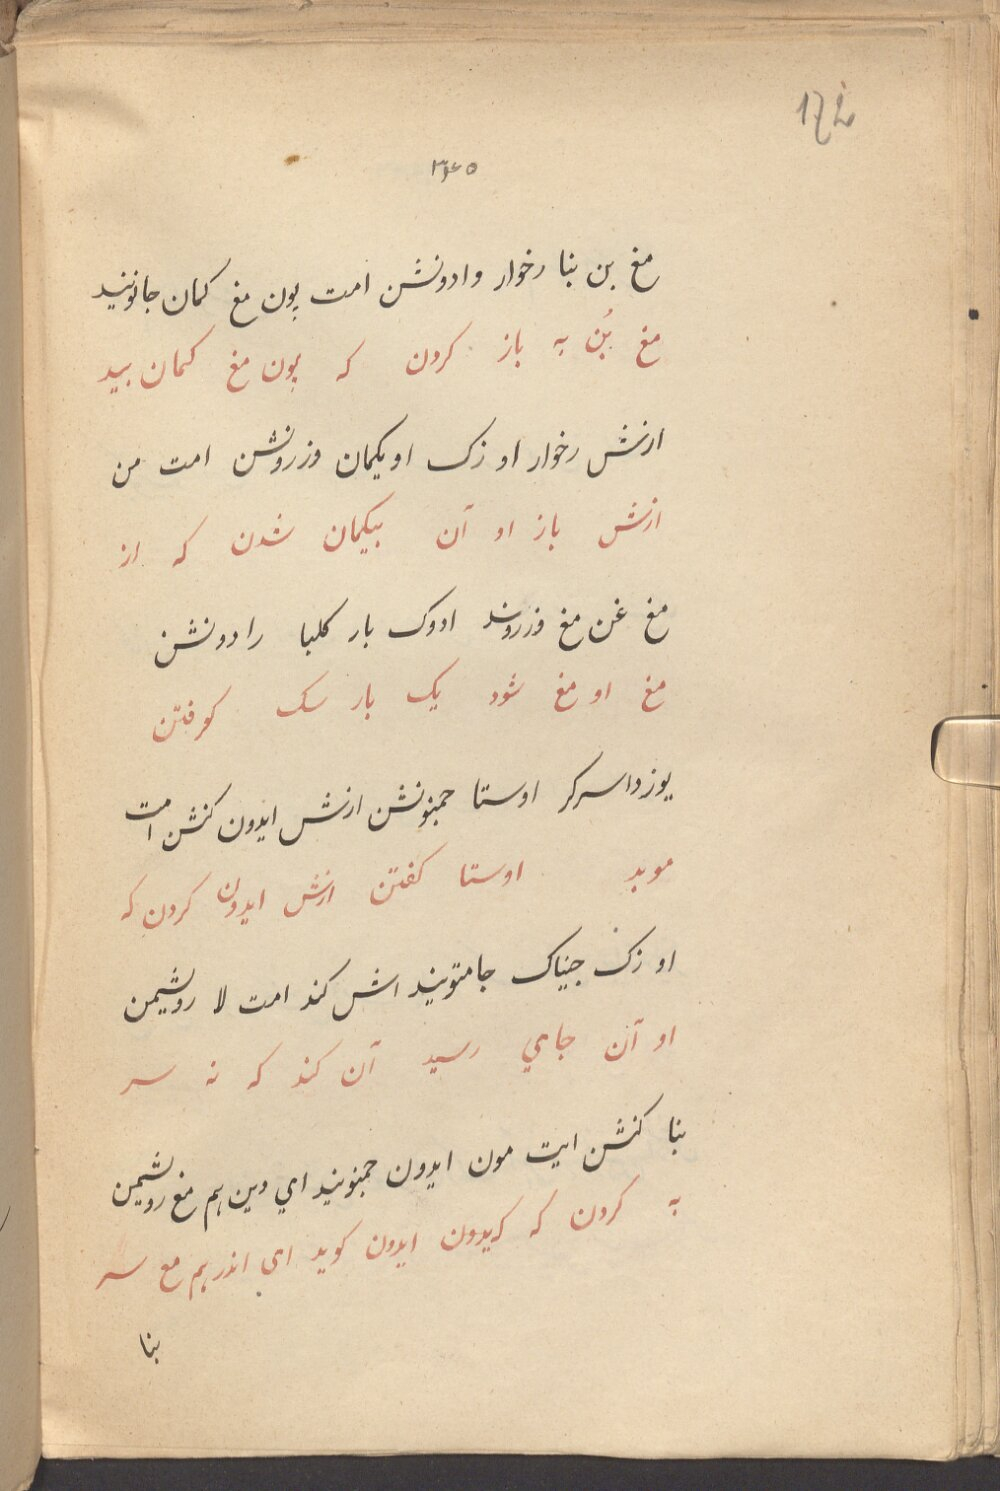 ۳۶۵
مغ بن بنا رخوار وادونشن امت پون مغ کمان جانونید
مغ بُن به باز کردن که پون مغ کمان بید
ازنش رخوار او زک اویکمان وزرونشن امت من
ازش باز او آن بیکمان شدن که از
مغ غن مغ وزروند ادوک بار کلبا رادونشن
مغ او مغ شود یک بار سک کرفتن
یوزداسرکر اوستا جمنونشن ازنش ایدون کنشن امت
موبد اوستا کفتن ازش ایدون کردن که
او زک جیناک جامتونید اش کند امت لا رویشمن
او آن جاي رسید آن کند که نه سر
بنا کنشن ایت مون ایدون جمنونید اي دین هم مغ رویشمن
به کردن که کیدون ایدون کوید اي اندر هم مغ سر
بنا